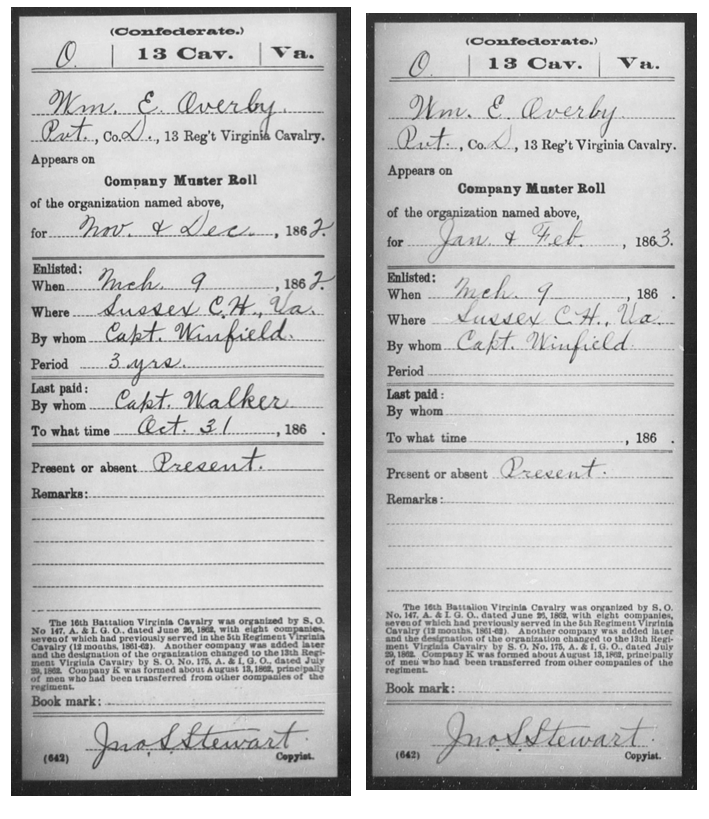 (Confederate.)
O. | 13 Cav. | Va.
Wm. E. Overby.
Pvt., Co. D., 13 Reg't Virginia Cavalry.
Appears on
Company Muster Roll
of the organization named above,
for Nov. & Dec., 1862.
Enlisted:
When Mch. 9, 1862.
Where Sussex C.H., Va.
By whom Capt. Winfield.
Period 3 yrs.
Last paid:
By whom Capt. Walker
To what time Oct. 31, 186 .
Present or absent Present.
Remarks:
The 16th Battalion Virginia Cavalry was organized by S. O.
No 147, A. & I. G. O., dated June 26, 1862, with eight companies,
seven of which had previously served in the 5th Regiment Virginia
Cavalry (12 months, 1861-62). Another company was added later
and the designation of the organization changed to the 13th Regi-
ment Virginia Cavalry by S. O. No. 175, A. & I. G. O., dated July
29, 1862. Company K was formed about August 13, 1862, principally
of men who had been transferred from other companies of the
regiment.
Book mark:
Jno. S. Stewart.
(642) Copyist.
(Confederate.)
O. | 13 Cav. | Va.
Wm. E. Overby
Pvt., Co. D, 13 Reg't Virginia Cavalry.
Appears on
Company Muster Roll
of the organization named above,
for Jan. & Feb., 1863.
Enlisted:
When Mch. 9, 186 .
Where Sussex C.H., Va.
By whom Capt. Winfield.
Period
Last paid:
By whom
To what time , 186 .
Present or absent Present.
Remarks:
The 16th Battalion Virginia Cavalry was organized by S. O.
No. 147, A. & I. G. O., dated June 26, 1862, with eight companies,
seven of which had previously served in the 5th Regiment Virginia
Cavalry (12 months, 1861-62). Another company was added later
and the designation of the organization changed to the 13th Regi-
ment Virginia Cavalry by S. O. No. 175, A. & I. G. O., dated July
29, 1862. Company K was formed about August 13, 1862, principally
of men who had been transferred from other companies of the
regiment.
Book mark:
Jno. S. Stewart.
(642) Copyist.